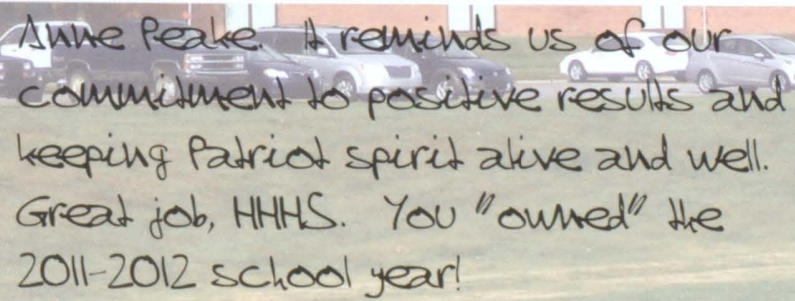 Anne Peake. It reminds us of our
commitment to positive results and
keeping Patriot spirit alive and well.
Great job, HHHS. You "owned" the
2011-2012 school year!